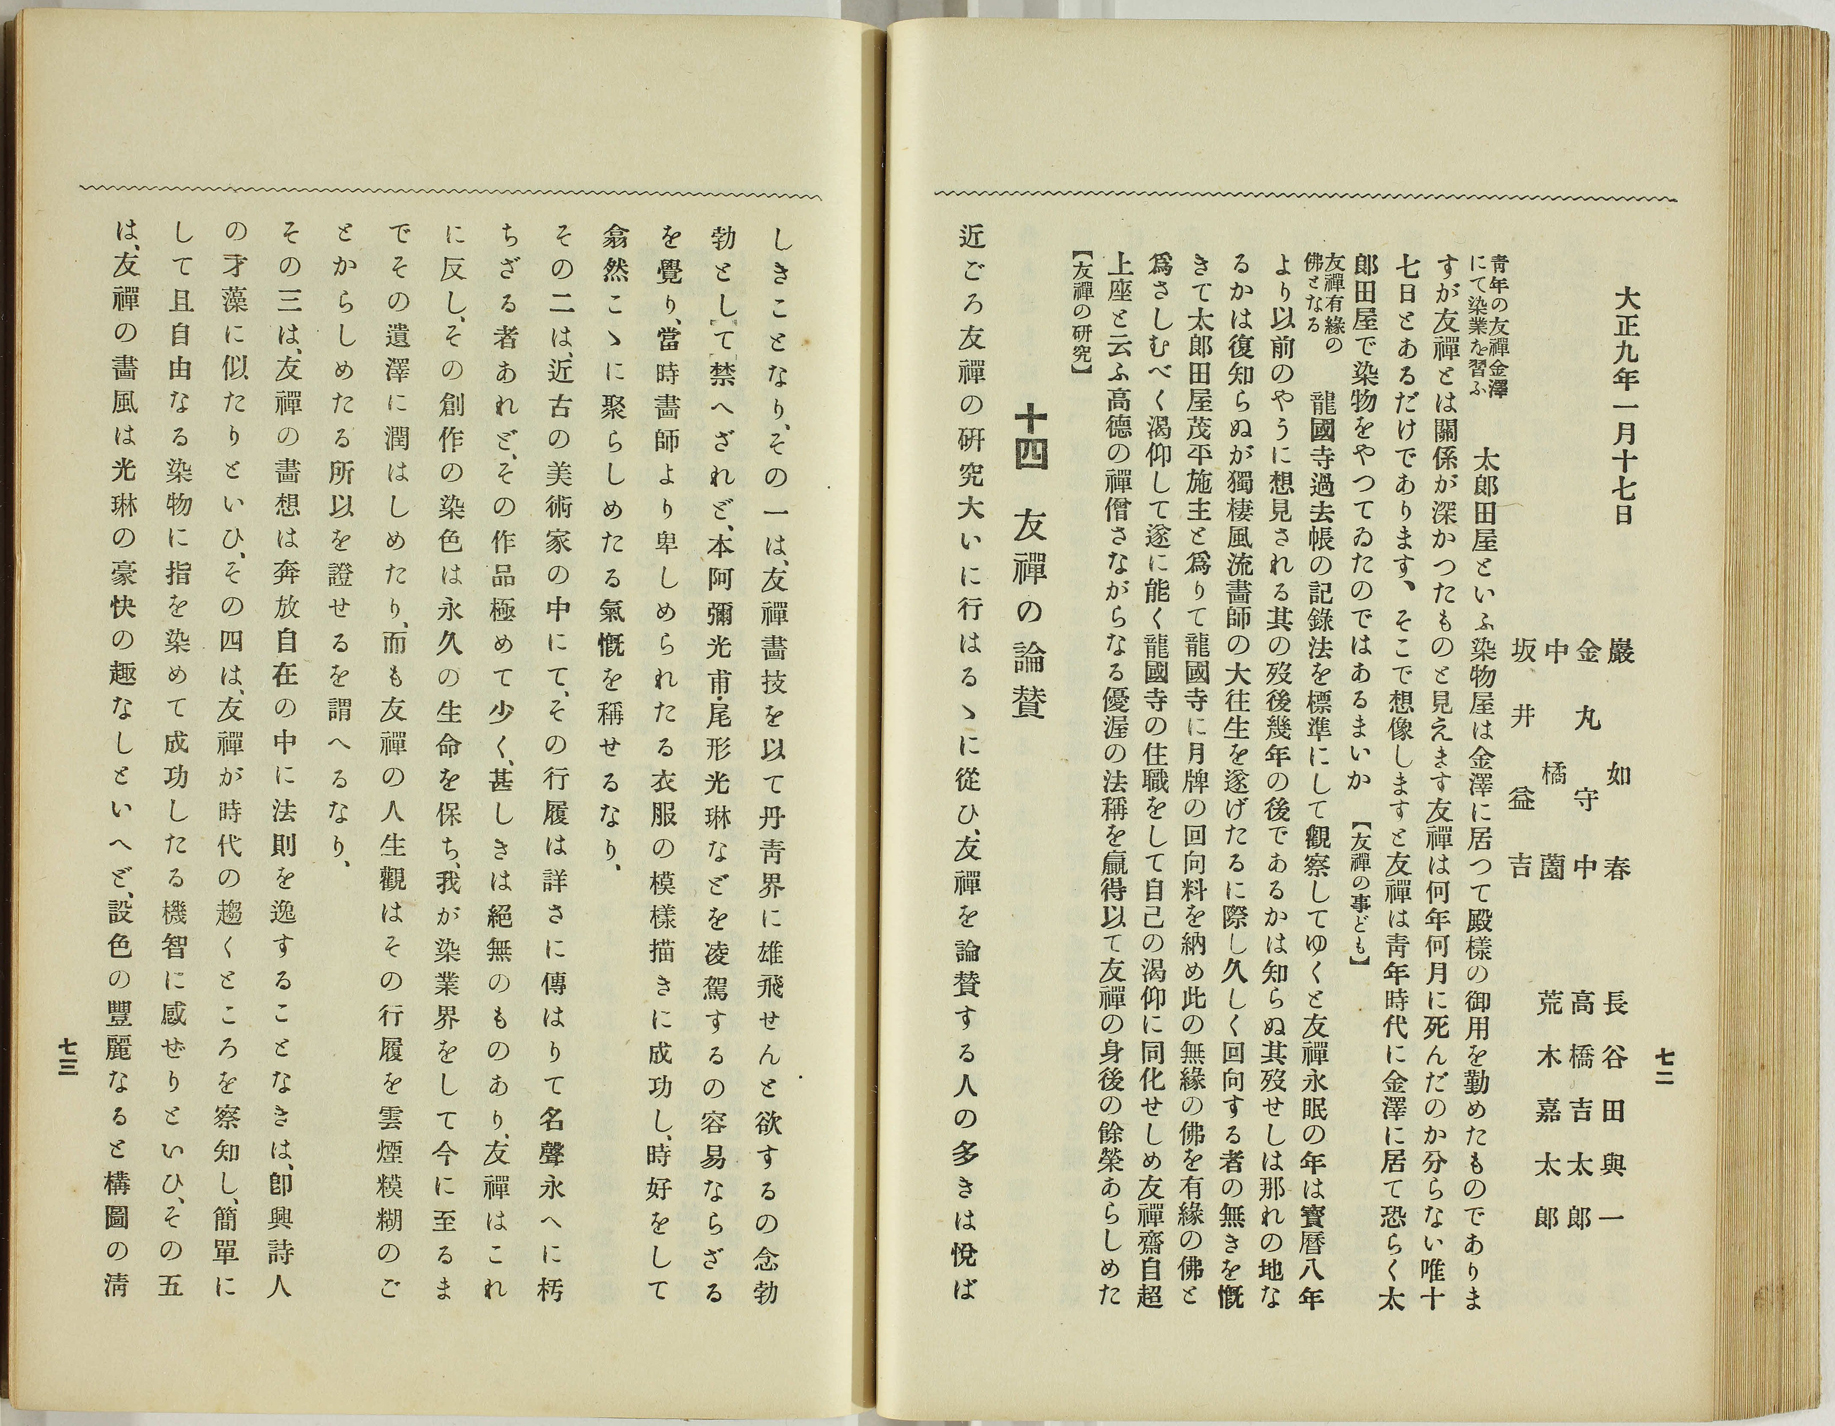 七二
大正九年一月十七日
巖如春
長谷田與一
金丸守中
高橋吉太郎
中橘薗
荒木嘉太郎
坂井益吉
青年の友禪金澤
にて染業を習ふ
太郎田屋といふ染物屋は金澤に居つて殿樣の御用を勤めたものでありま
すが友禪とは關係が深かつたものと見えます友禪は何年何月に死んだのか分らない唯十
七日とあるだけであります、そこで想像しますと友禪は靑年時代に金澤に居て恐らく太
郎田屋で染物をやつてゐたのではあるまいか【友禪の事ども】
友禪有緣の
佛となる
龍國寺過去帳の記錄法を標準にして觀察してゆくと友禪永眠の年は寶曆八年
より以前のやうに想見される其の歿後幾年の後であるかは知らぬ其歿せしは那れの地な
るかは復知らぬが獨棲風流畵師の大往生を遂げたるに際し久しく回向する者の無きを慨
きて太郎田屋茂平施主と爲りて龍國寺に月牌の回向料を納め此の無緣の佛を有緣の佛と
爲さしむべく渴仰して遂に能く龍國寺の住職をして自己の渴仰に同化せしめ友禪齋自超
上座と云ふ高德の禪僧さながらなる優渥の法稱を贏得以て友禪の身後の餘榮あらしめた
【友禪の硏究】
十四　友禪の論賛
近ごろ友禪の硏究大いに行はるゝに從ひ、友禪を論賛する人の多きは悅ば
しきことなり、その一は、友禪畵技を以て丹靑界に雄飛せんと欲するの念勃
勃として禁へざれど、本阿彌光甫・尾形光琳などを凌駕するの容易ならざる
を覺り、當時畵師より卑しめられたる衣服の模樣描きに成功し、時好をして
翕然こゝに聚らしめたる氣慨を稱せるなり、
その二は、近古の美術家の中にて、その行履は詳さに傳はりて名聲永へに朽
ちざる者あれど、その作品極めて少く、甚しきは絕無のものあり、友禪はこれ
に反し、その創作の染色は永久の生命を保ち、我が染業界をして今に至るま
でその遺澤に潤はしめたり、而も友禪の人生觀はその行履を雲煙糢糊のご
とからしめたる所以を證せるを謂へるなり、
その三は、友禪の畵想は奔放自在の中に法則を逸することなきは、卽興詩人
の才藻に似たりといひ、その四は、友禪が時代の趨くところを察知し、簡單に
して且自由なる染物に指を染めて成功したる機智に感ぜりといひ、その五
は、友禪の畵風は光琳の豪快の趣なしといへど、設色の豐麗なると構圖の淸
七三